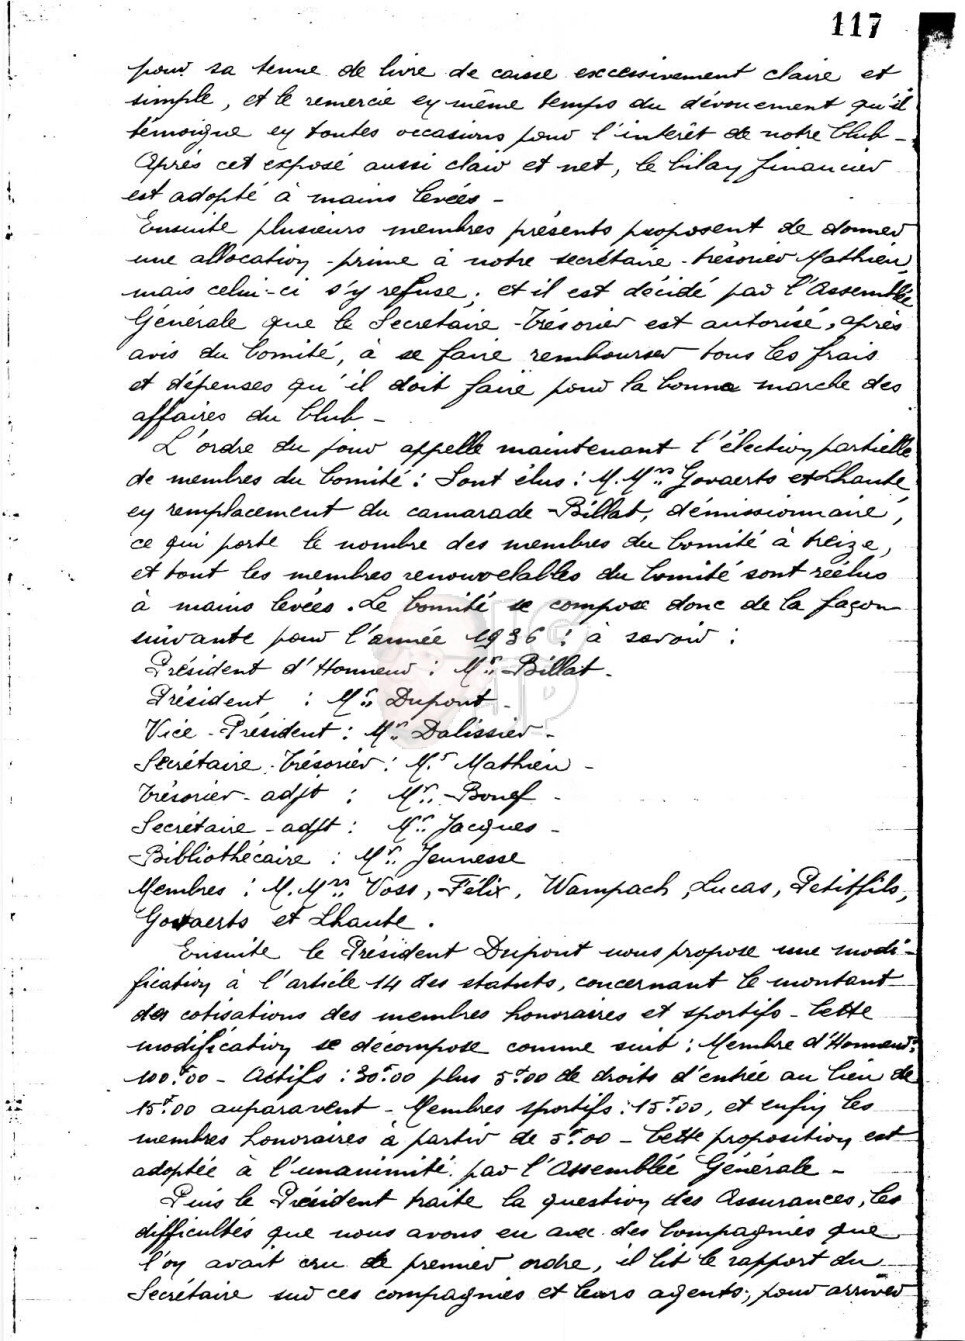 117
pour sa tenue de livre de caisse excessivement claire et
simple, et le remercie en même temps du dévouement qu'il
témoigne en toutes occasions pour l'intérêt de notre Club -
Après cet exposé aussi clair et net, le bilan financier
est adopté à mains levées -
Ensuite plusieurs membres présents proposent de donner
une allocation - prime à notre secrétaire - trésorier Mathieu,
mais celui-ci s'y refuse; et il est décidé par l'Assemblée
Générale que le Secrétaire - Trésorier est autorisé, après
avis du Comité, à se faire rembourser tous les frais
et dépenses qu'il doit faire pour la bonne marche des
affaires du Club -
L'ordre du jour appelle maintenant l'élection partielle
de membres du Comité : Sont élus : M.Mrs Govaerts et Lhaute
en remplacement du camarade Billat, démissionnaire,
ce qui porte le nombre des membres du Comité à treize,
et tout les membres renouvelables du Comité sont réélus
à mains levées. Le Comité se compose donc de la façon
suivante pour l'année 1936 : à savoir :
Président d'Honneur : Mr. Billat -
Président : Mr. Dupont -
Vice - Président : Mr. Dalissier -
Secrétaire - Trésorier : Mr Mathieu -
Trésorier - adjt : Mr. Bouef -
Secrétaire - adjt : Mr. Jacques -
Bibliothécaire : Mr. Jeunesse
Membres : M.Mrs. Voss, Félix, Wampach, Lucas, Petitfils,
Govaerts et Lhaute.
Ensuite le Président Dupont nous propose une modi-
fication à l'article 14 des statuts, concernant le montant
des cotisations des membres honoraires et sportifs - Cette
modification se décompose comme suit : Membre d'Honneur :
100f00 - Actifs : 30f00 plus 5f00 de droits d'entrée au lieu de
15f00 auparavent - Membres sportifs : 15f00, et enfin les
membres honoraires à partir de 5f00 - Cette proposition est
adoptée à l'unanimité par l'Assemblée Générale -
Puis le Président traite la question des Assurances, les
difficultés que nous avons eu avec des Compagnies que
l'on avait cru de premier ordre, il lit le rapport du
Secrétaire sur ces compagnies et leurs agents, pour arriver